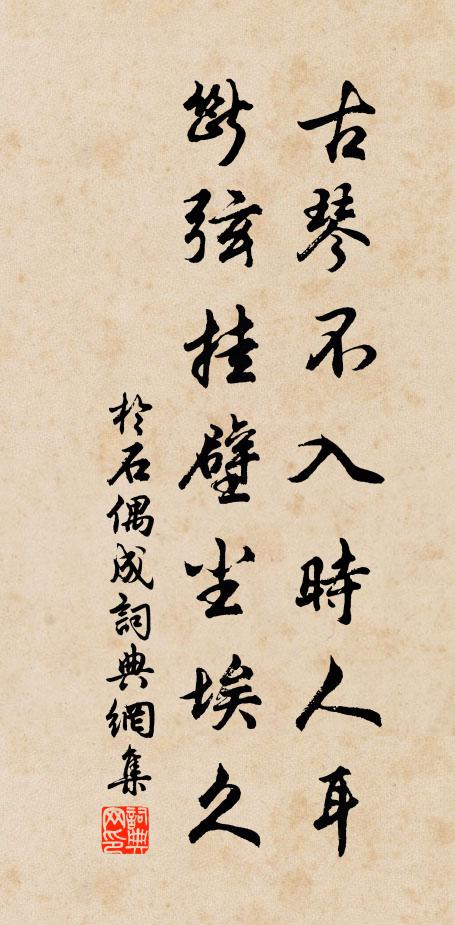 古琴不入時人耳
斷弦挂壁尘埃久
於石偶成詞典網集
詞典網印